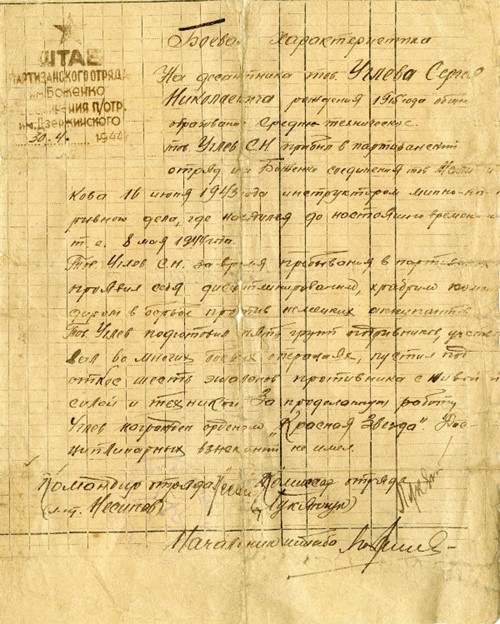 ШТАБ
ПАРТИЗАНСКОГО ОТРЯДА
им. Боженко
п/отр.
им. Дзержинского
30. 4. 1944
Боевая характеристика
На десантника тов. Углева Сергея
Николаевича рождения 1915 года
образование среднее техническое.
тов. Углев С.Н. прибыл в партизанский
отряд им Боженко соединения тов
кова 16 июня 1943 года инструктором минно-под
рывного дела, где находился до настоящего времени
т. е. 8 мая 1944 года.
Тов Углев С.Н. за время пребывания в
проявил себя дисциплинированным, храбрым
диром в борьбе против немецких оккупантов
Тов. Углев подготовил пять групп подрывников,
вал во многих боевых операциях, пустил под
откос шесть эшалонов противника с живой
силой и техникой За проделанную работу
Углев награжден орденом „Красная Звезда" Дис
циплинарных взысканий не имел.
Командир отряда Комиссар отряда
Начальник штаба